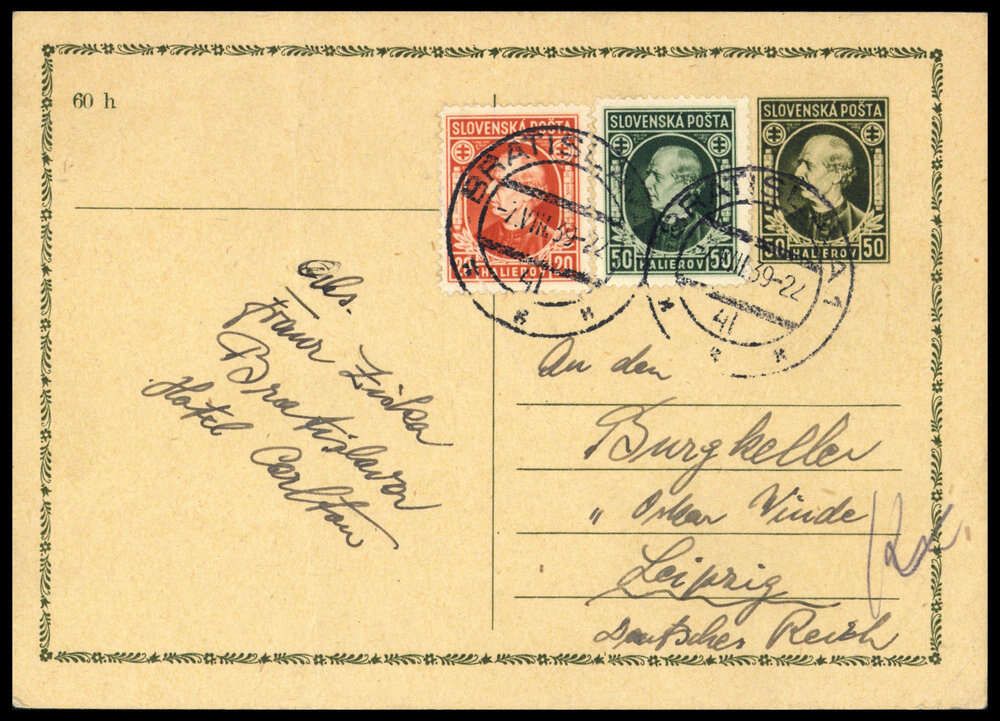 60 h
SLOVENSKÁ POŠTA
20 HALIEROV 20
SLOVENSKÁ POŠTA
50 HALIEROV 50
SLOVENSKÁ POŠTA
50 HALIEROV 50
BRATISLAVA
-7.VIII.39-22
41
BRATISLAVA 1
-7.VIII.39-22
41
Abs.
Franz Ziska
Bratislava
Hotel Carlton
An den
Burgkeller
„ Oskar Winde
Leipzig
Deutsches Reich